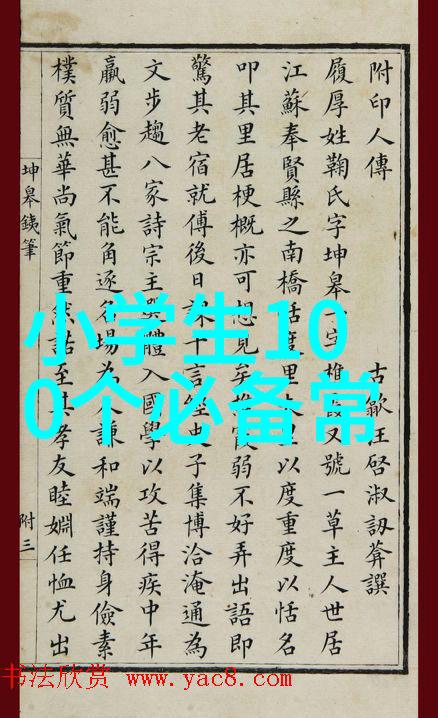 附印人傳 古歙汪啓淑訒葊譔
履厚姓鞠氏字坤皋一字樵霞又號一草主人世居
江蘇奉賢縣之南橋恬度里以度重度以恬名
叩其里居梗概亦可想見矣樵霞弱不好弄出語即
驚其老宿就傅後日課千言經史子集博洽淹通為
文步趨八家詩宗主選體入國學以攻苦得疾中年
羸弱愈甚不能角逐名場為人謙和端謹持身儉素
樸質無華尚氣節重然諾至其孝友睦婣任恤尤出
坤皋銕筆
附三
小学生10
0个必备常
书法欣赏 www.yac8.com